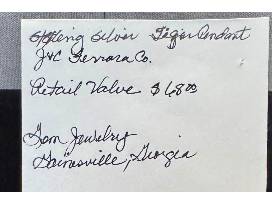 Sterling Silver Tiger Pendant
J & C Ferrara Co.
Retail Value $68.00
Gem Jewelry
Gainesville, Georgia